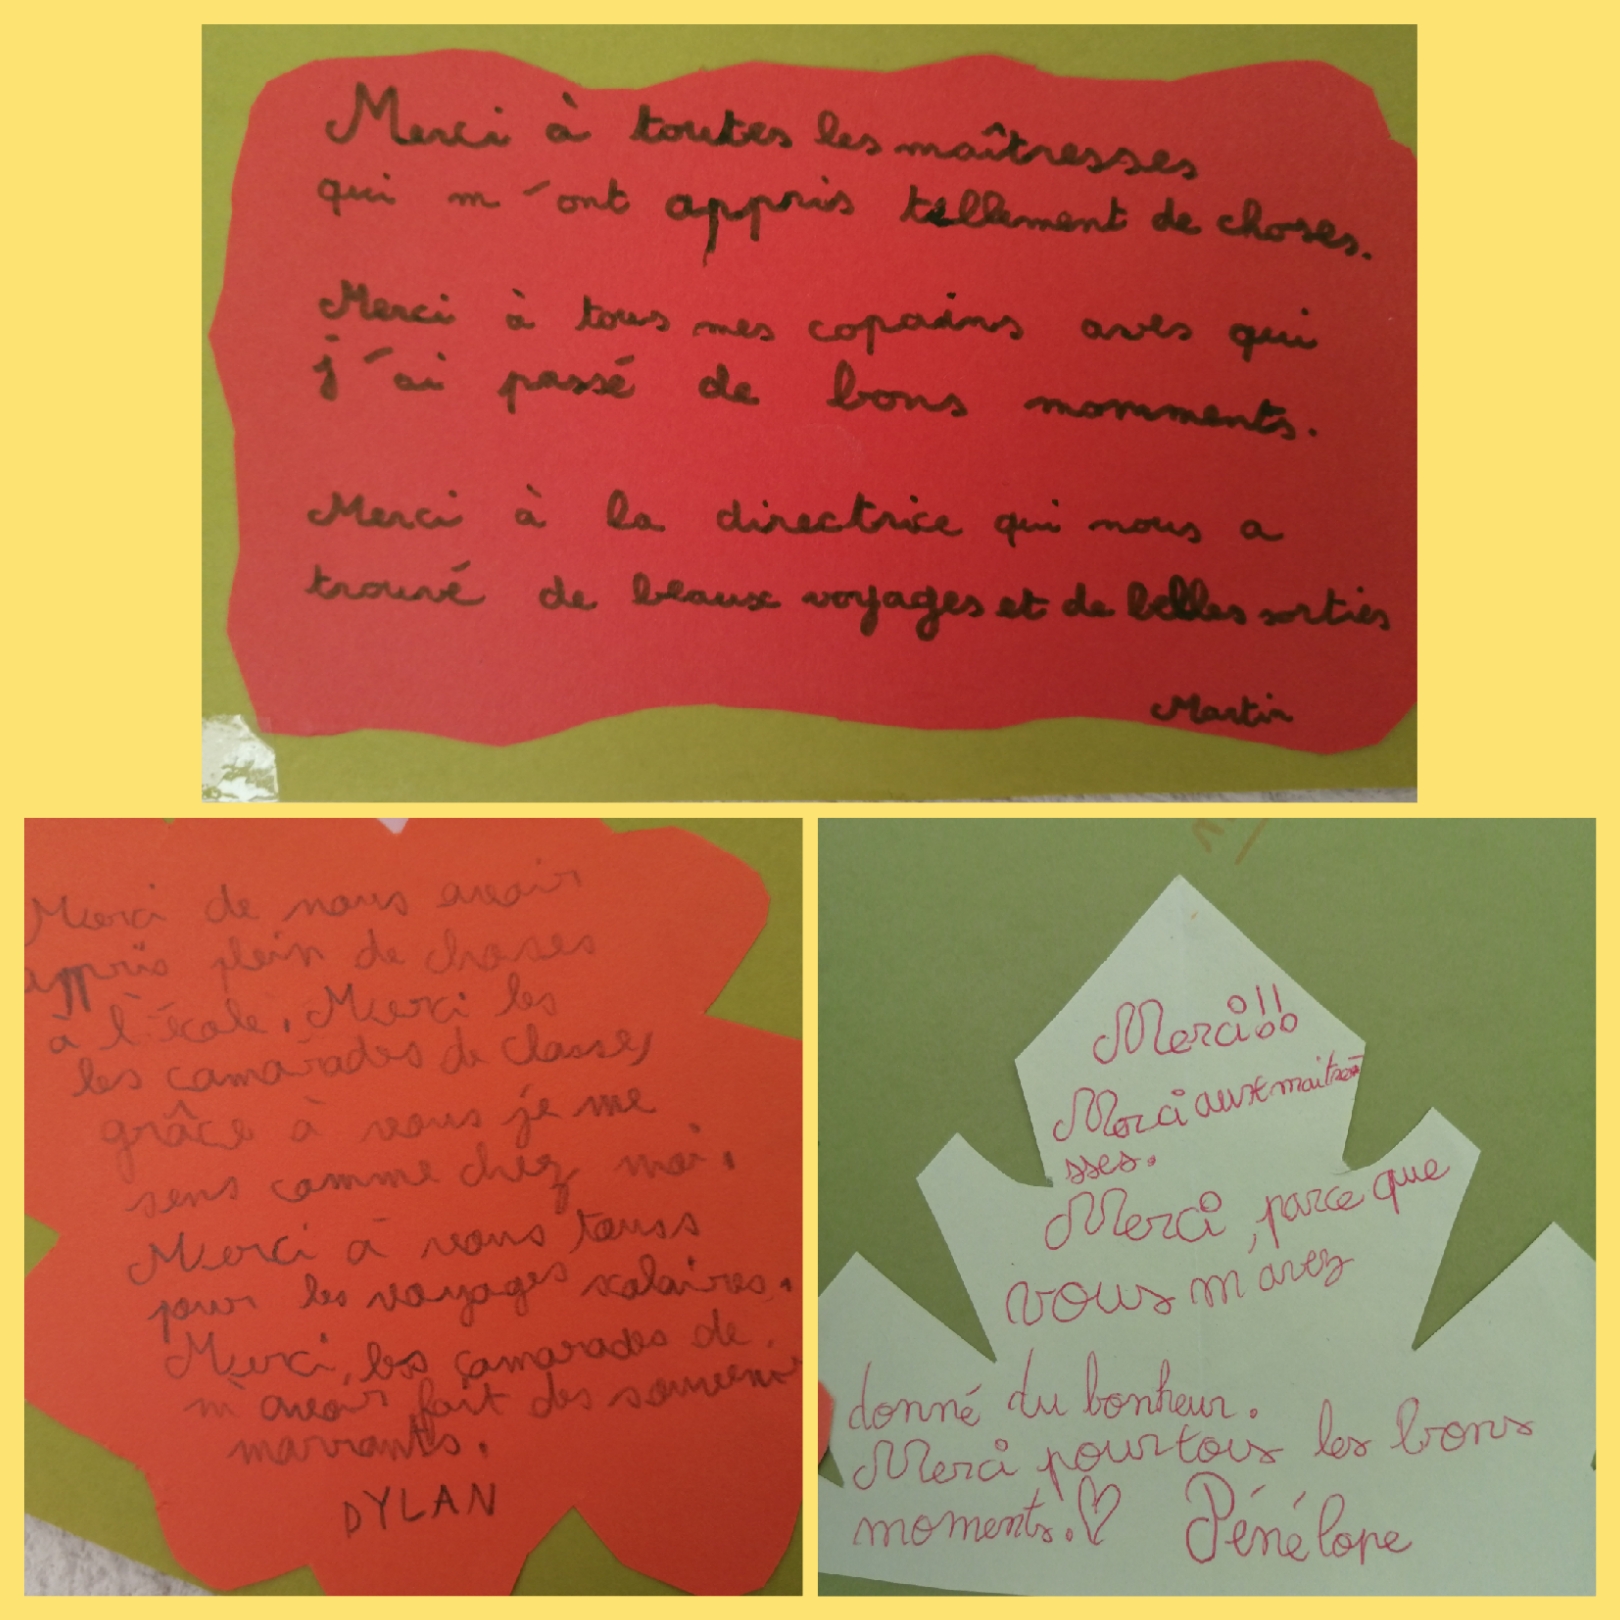 Merci à toutes les maîtresses
qui m'ont appris tellement de choses.
Merci à tous mes copains aves qui
j'ai passé de bons momments.
Merci à la directrice qui nous a
trouvé de beaux voyages et de belles sorties
Martin
Merci de nous avoir
appris plein de choses
à l'école. Merci les
les camarades de classe,
grâce à vous je me
sens comme chez moi.
Merci à vous touss
pour les voyages scolaires.
Merci, les camarades de
m'avoir fait des souvenir
marrants.
DYLAN
Merci!!
Merci aux maitre-
sses.
Merci, parce que
vous m'avez
donné du bonheur.
Merci pour tous les bons
moments.♡ Pénélope